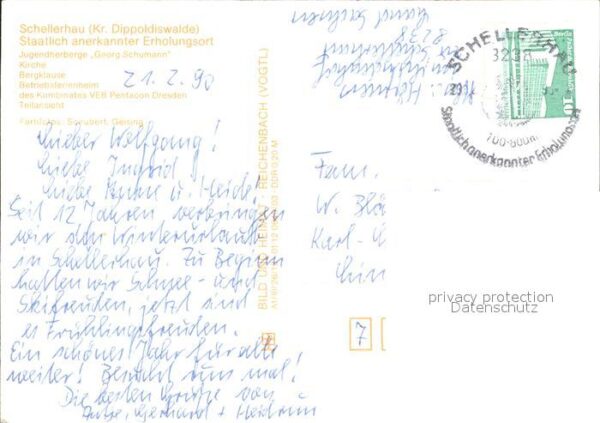 Schellerhau (Kr. Dippoldiswalde)
Staatlich anerkannter Erholungsort
Jugendherberge „Georg Schumann"
Kirche
Bergklause
Betriebsferienheim
des Kombinates VEB Pentacon Dresden
Teilansicht
Farbfotos: Schubert, Geising
21.2.90
Lieber Wolfgang!
Liebe Ingrid!
Liebe u. Heide!
Seit 12 Jahren verbringen
wir den Winterurlaub
in Schellerhau. Zu Beginn
hatten wir Schnee- und
Skifreuden, jetzt sind
es Frühlingsfreuden.
Ein schönes Jahr für alle
weiter! Besucht uns mal!
Die besten Grüße von
Gerhard + Heidrun
BILD UND HEIMAT REICHENBACH (VOGTL)
DDR 0,20 M
8238
SCHELLERHAU
8238
Staatlich anerkannter Erholungsort
Berlin
10
DDR
Fam.
W.
Karl-
7
privacy protection
Datenschutz